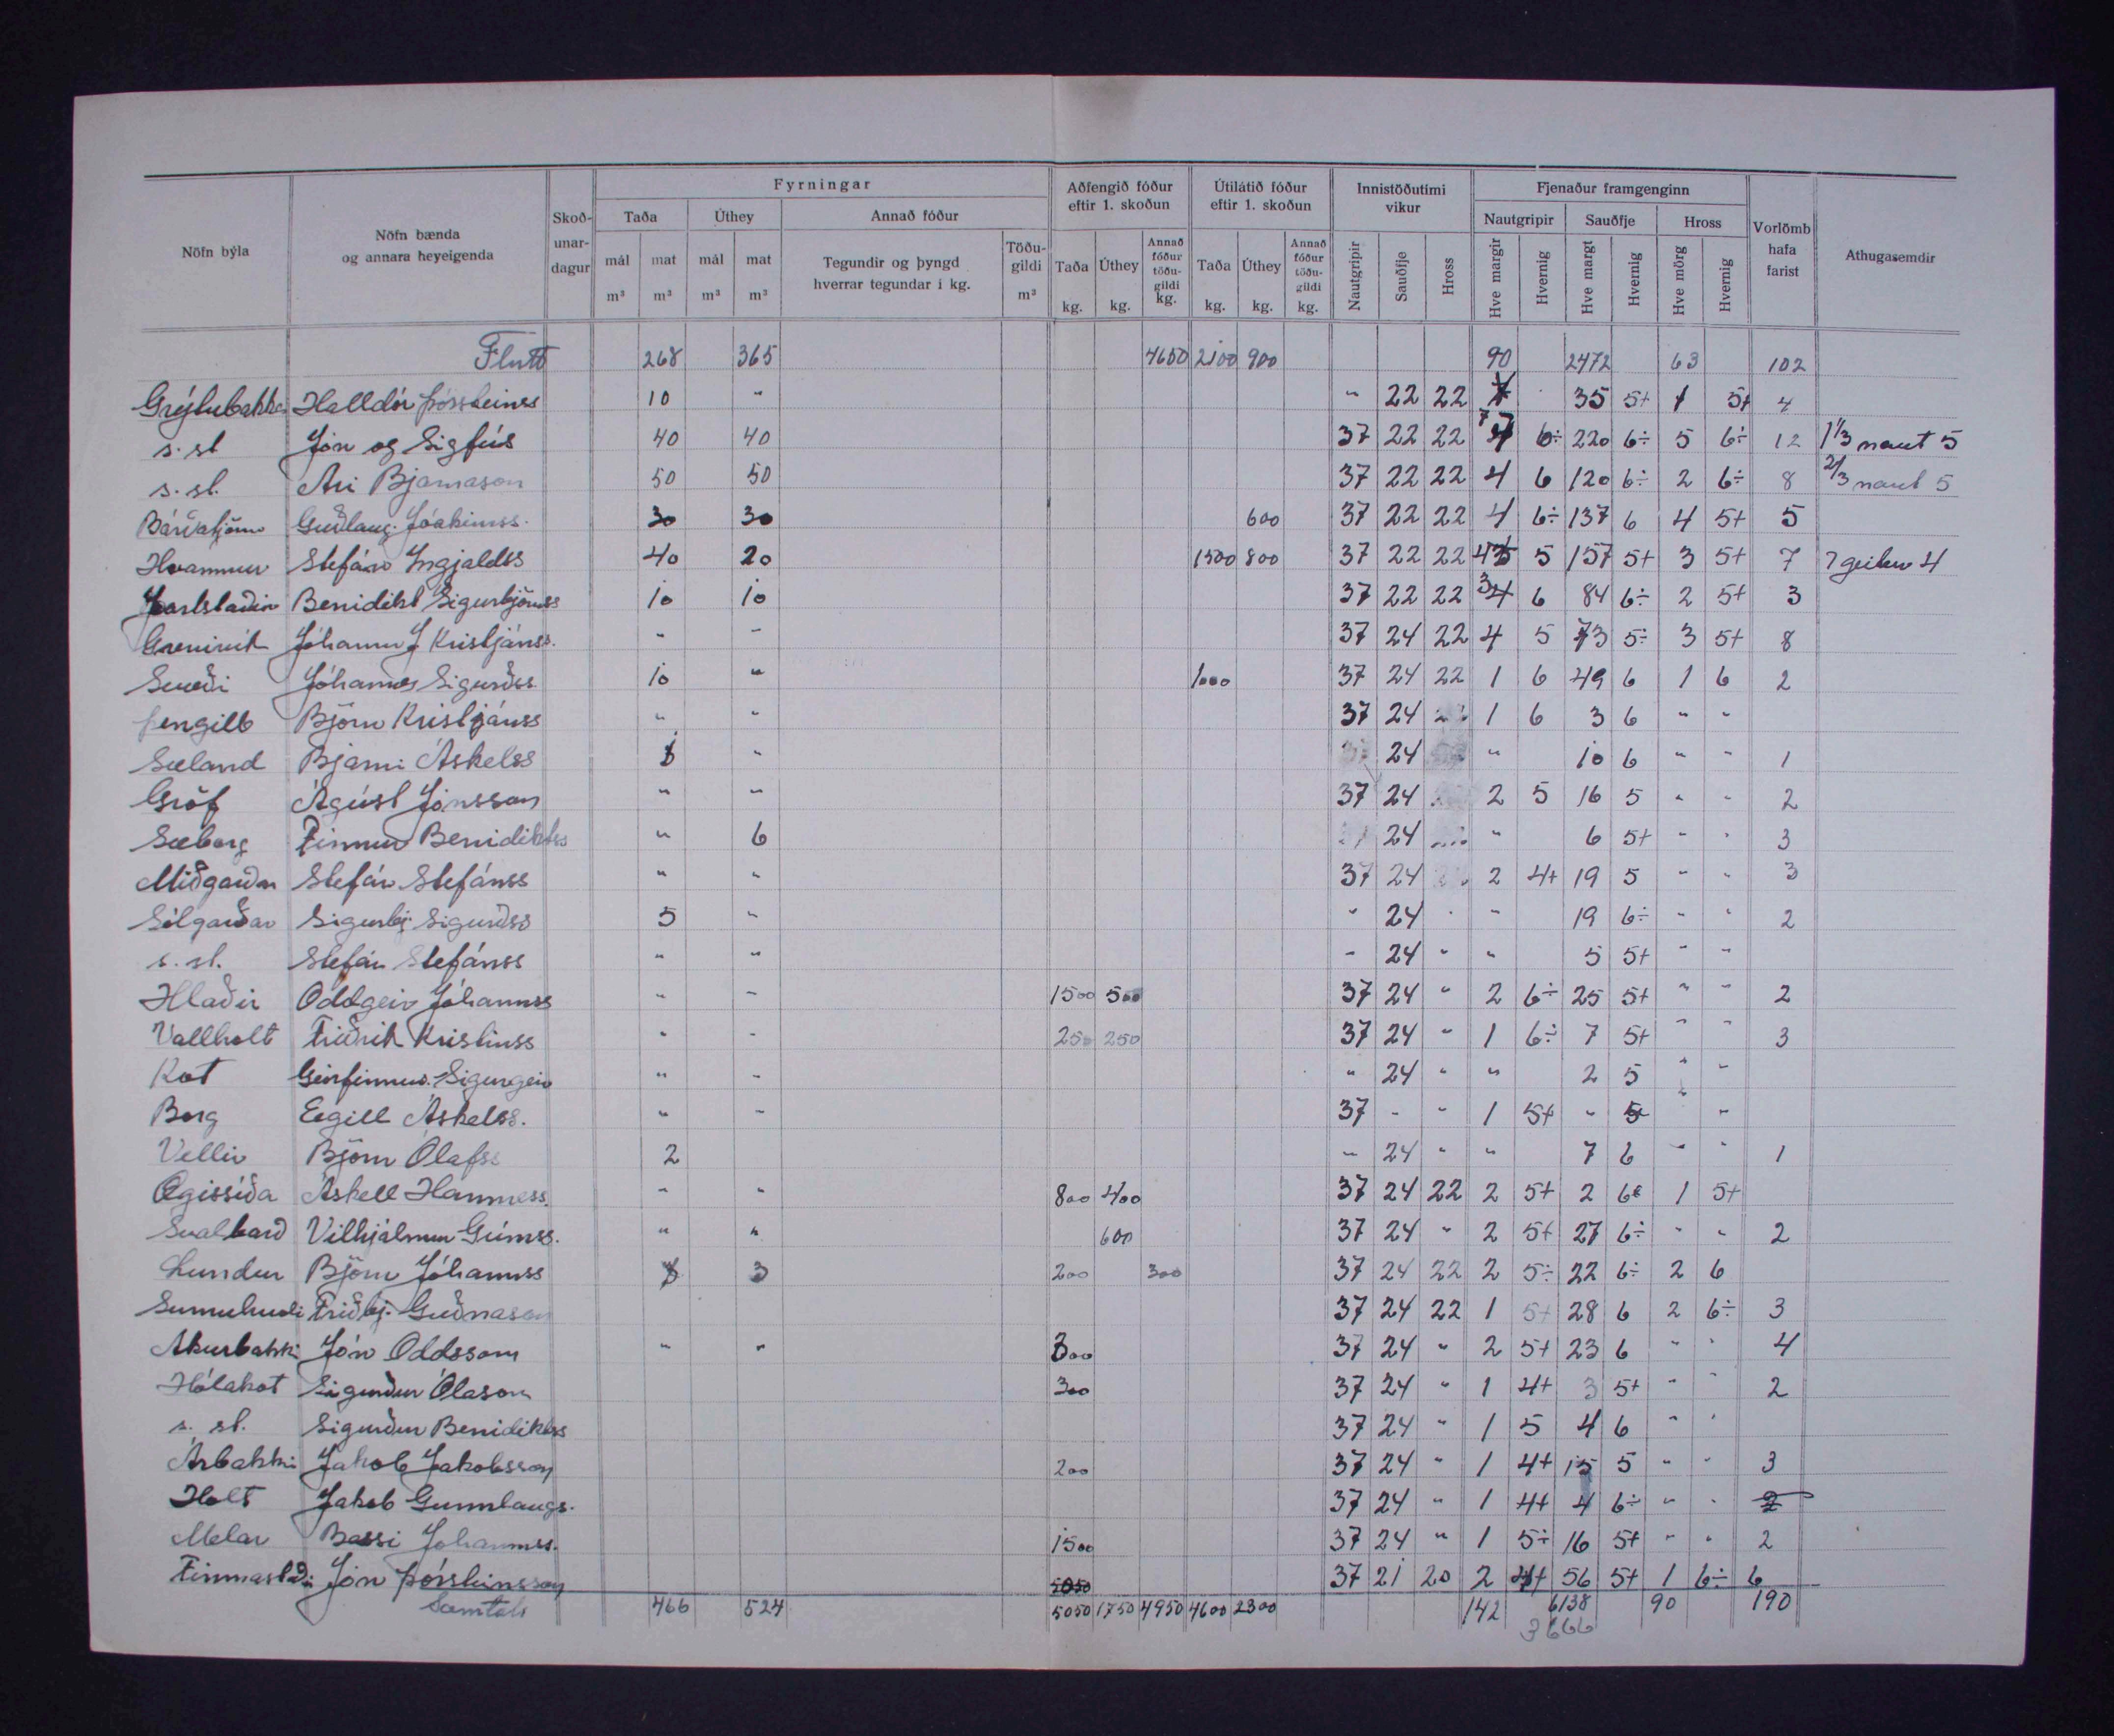 Nöfn býla | Nöfn bænda og annara heyeigenda | Skoðunardagur | Fyrningar | Aðfengið fóður eftir 1. skoðun | Útilátið fóður eftir 1. skoðun | Innistöðutími vikur | Fjenaður framgenginn | Vorlömb hafa farist | Athugasemdir
Taða | Úthey | Annað fóður | Nautgripir | Sauðfje | Hross
mál m³ | mat m³ | mál m³ | mat m³ | Tegundir og þyngd hverrar tegundar í kg. | Töðugildi m³ | Taða kg. | Úthey kg. | Annað fóður töðugildi kg. | Taða kg. | Úthey kg. | Annað fóður töðugildi kg. | Nautgripir | Sauðfje | Hross | Hve margir | Hvernig | Hve margt | Hvernig | Hve mörg | Hvernig
Flutt 268 365 4650 2100 900 90 2472 63 102
Grýtubakka Halldór Þórsteinss 10 " " 22 22 35 5+ 1 5+ 4
s. st Jón og Sigfús 40 40 37 22 22 7 6÷ 220 6÷ 5 6÷ 12 1 1/3 naut 5
s. st. Ari Bjarnason 50 50 37 22 22 4 6 120 6÷ 2 6÷ 8 2/3 naut 5
Bárðartjörn Guðlaug. Jóakimss. 30 30 600 37 22 22 4 6÷ 137 6 4 5+ 5
Hvammur Stefán Ingjaldss 40 20 1500 800 37 22 22 5 157 5+ 3 5+ 7 7 geitur 4
Jarlstaðir Benidikt Sigurbjörnss 10 10 37 22 22 3 6 84 6÷ 2 5+ 3
Grenivík Jóhann J Kristjánss. " - 37 24 22 4 5 73 5÷ 3 5+ 8
Jóhannes Sigurðss 10 " 1000 37 24 22 1 6 49 6 1 6 2
Þengilb Björn Kristjánss " " 37 24 1 6 3 6 " "
Sæland Bjarni Áskelss " 24 " 10 6 " " 1
Gröf Ágúst Jónsson " " 37 24 2 5 16 5 " " 2
Sæborg Finnur Benidiktss " 6 24 " 6 5+ " " 3
Miðgarðar Stefán Stefánss " " 37 24 2 4+ 19 5 " " 3
Sólgarðar Sigurbj. Sigurðss 5 " " 24 " " 19 6÷ " " 2
s. st. Stefán Stefánss " " - 24 " " 5 5+ " "
Hlaðir Oddgeir Jóhannss " - 1500 500 37 24 " 2 6÷ 25 5+ " " 2
Vallholt Friðrik Kristinss " - 250 250 37 24 " 1 6÷ 7 5+ " " 3
Kot Geirfinnur Sigurgeir " - " 24 " " 2 5 " "
Borg Egill Áskelss. " - 37 - " 1 5+ " " "
Vellir Björn Ólafss 2 " 24 " " 7 6 " " 1
Ægissíða Áskell Hanness. " " 800 400 37 24 22 2 5+ 2 6 1 5+
Svalbarð Vilhjálmur Grímss. " " 600 37 24 " 2 5+ 27 6÷ " " 2
Lundur Björn Jóhannss 3 200 300 37 24 22 2 5÷ 22 6÷ 2 6
Sunnuhvoli Friðbj. Guðnason 37 24 22 1 5+ 28 6 2 6÷ 3
Akurbakki Jón Oddsson " " 300 37 24 " 2 5+ 23 6 " " 4
Hólakot Sigurður Ólason 300 37 24 " 1 4+ 3 5+ " " 2
s. st. Sigurður Benidiktss 37 24 " 1 5 4 6 " "
Árbakki Jakob Jakobsson 200 37 24 " 1 4+ 15 5 " " 3
Holt Jakob Gunnlaugs. 37 24 " 1 4+ 4 6÷ " " 2
Melar Bassi Jóhanness. 1500 37 24 " 1 5÷ 16 5+ " " 2
Finnastaði Jón Þórsteinsson 5050 37 21 20 2 4+ 56 5+ 1 6÷ 6
Samtals 466 524 5050 1750 4950 4600 2300 142 6138 90 190
3666